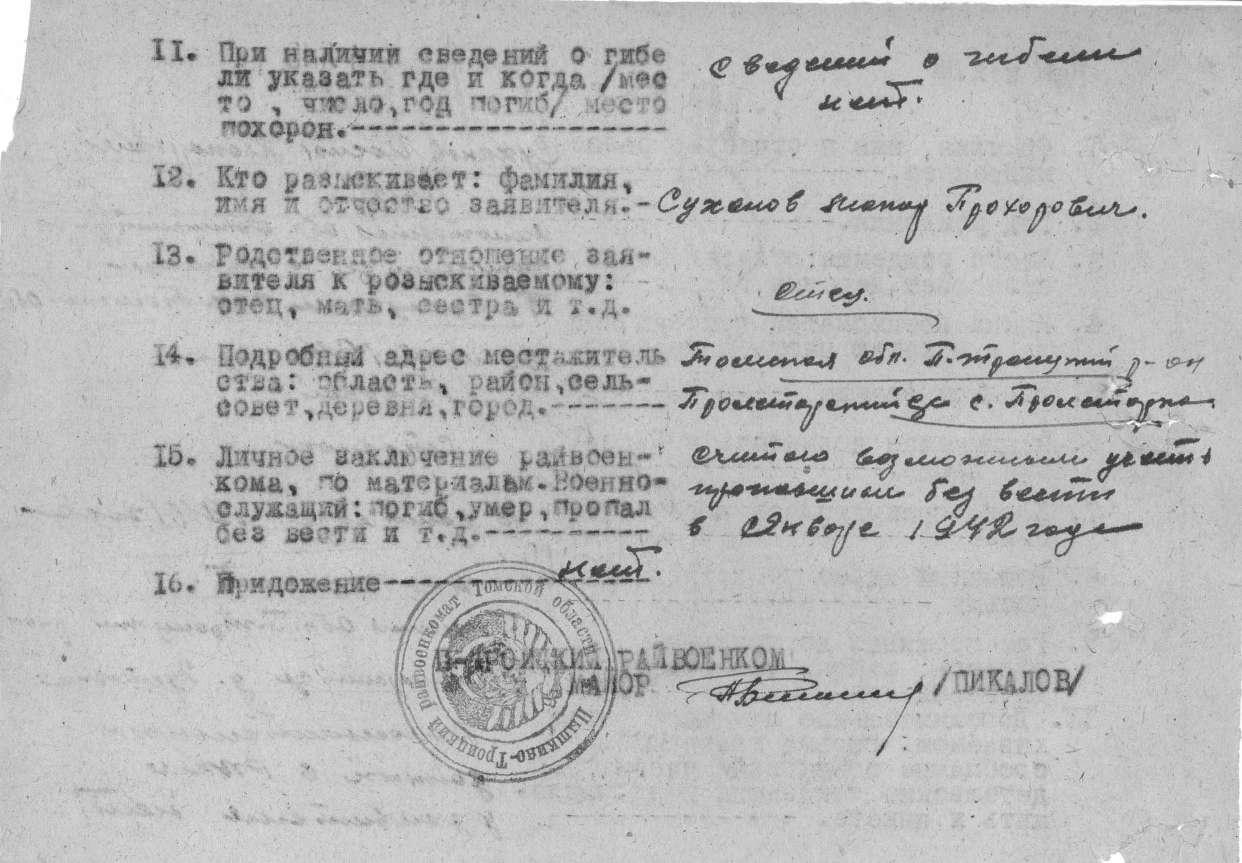 11. При наличии сведений о гибе
ли указать где и когда /мес
то , число,год погиб/ место
похорон.--------------------
сведений о гибели
нет.
12. Кто разыскивает: фамилия,
имя и отчество заявителя.- Суханов Прохорович.
13. Родственное отношение зая-
вителя к розыскиваемому:
отец, мать, сестра и т.д.
отец.
14. Подробный адрес местажитель
ства: область, район,сель-
совет,деревня,город.-------
Томская обл. П.-Троицкий р-он
Пролетарский с/с с. Пролетарка
15. Личное заключение райвоен-
кома, по материалам.Военно-
служащий: погиб,умер,пропал
без вести и т.д.----------
считаю возможным учесть
пропавшим без вести
в Январе 1942 года
16. Придожение---------------- нет.
П-ТРОИЦКИЙ РАЙВОЕНКОМ
МАЙОР /ПИКАЛОВ/
Пышкино-Троицкий Райвоенкомат Томской области